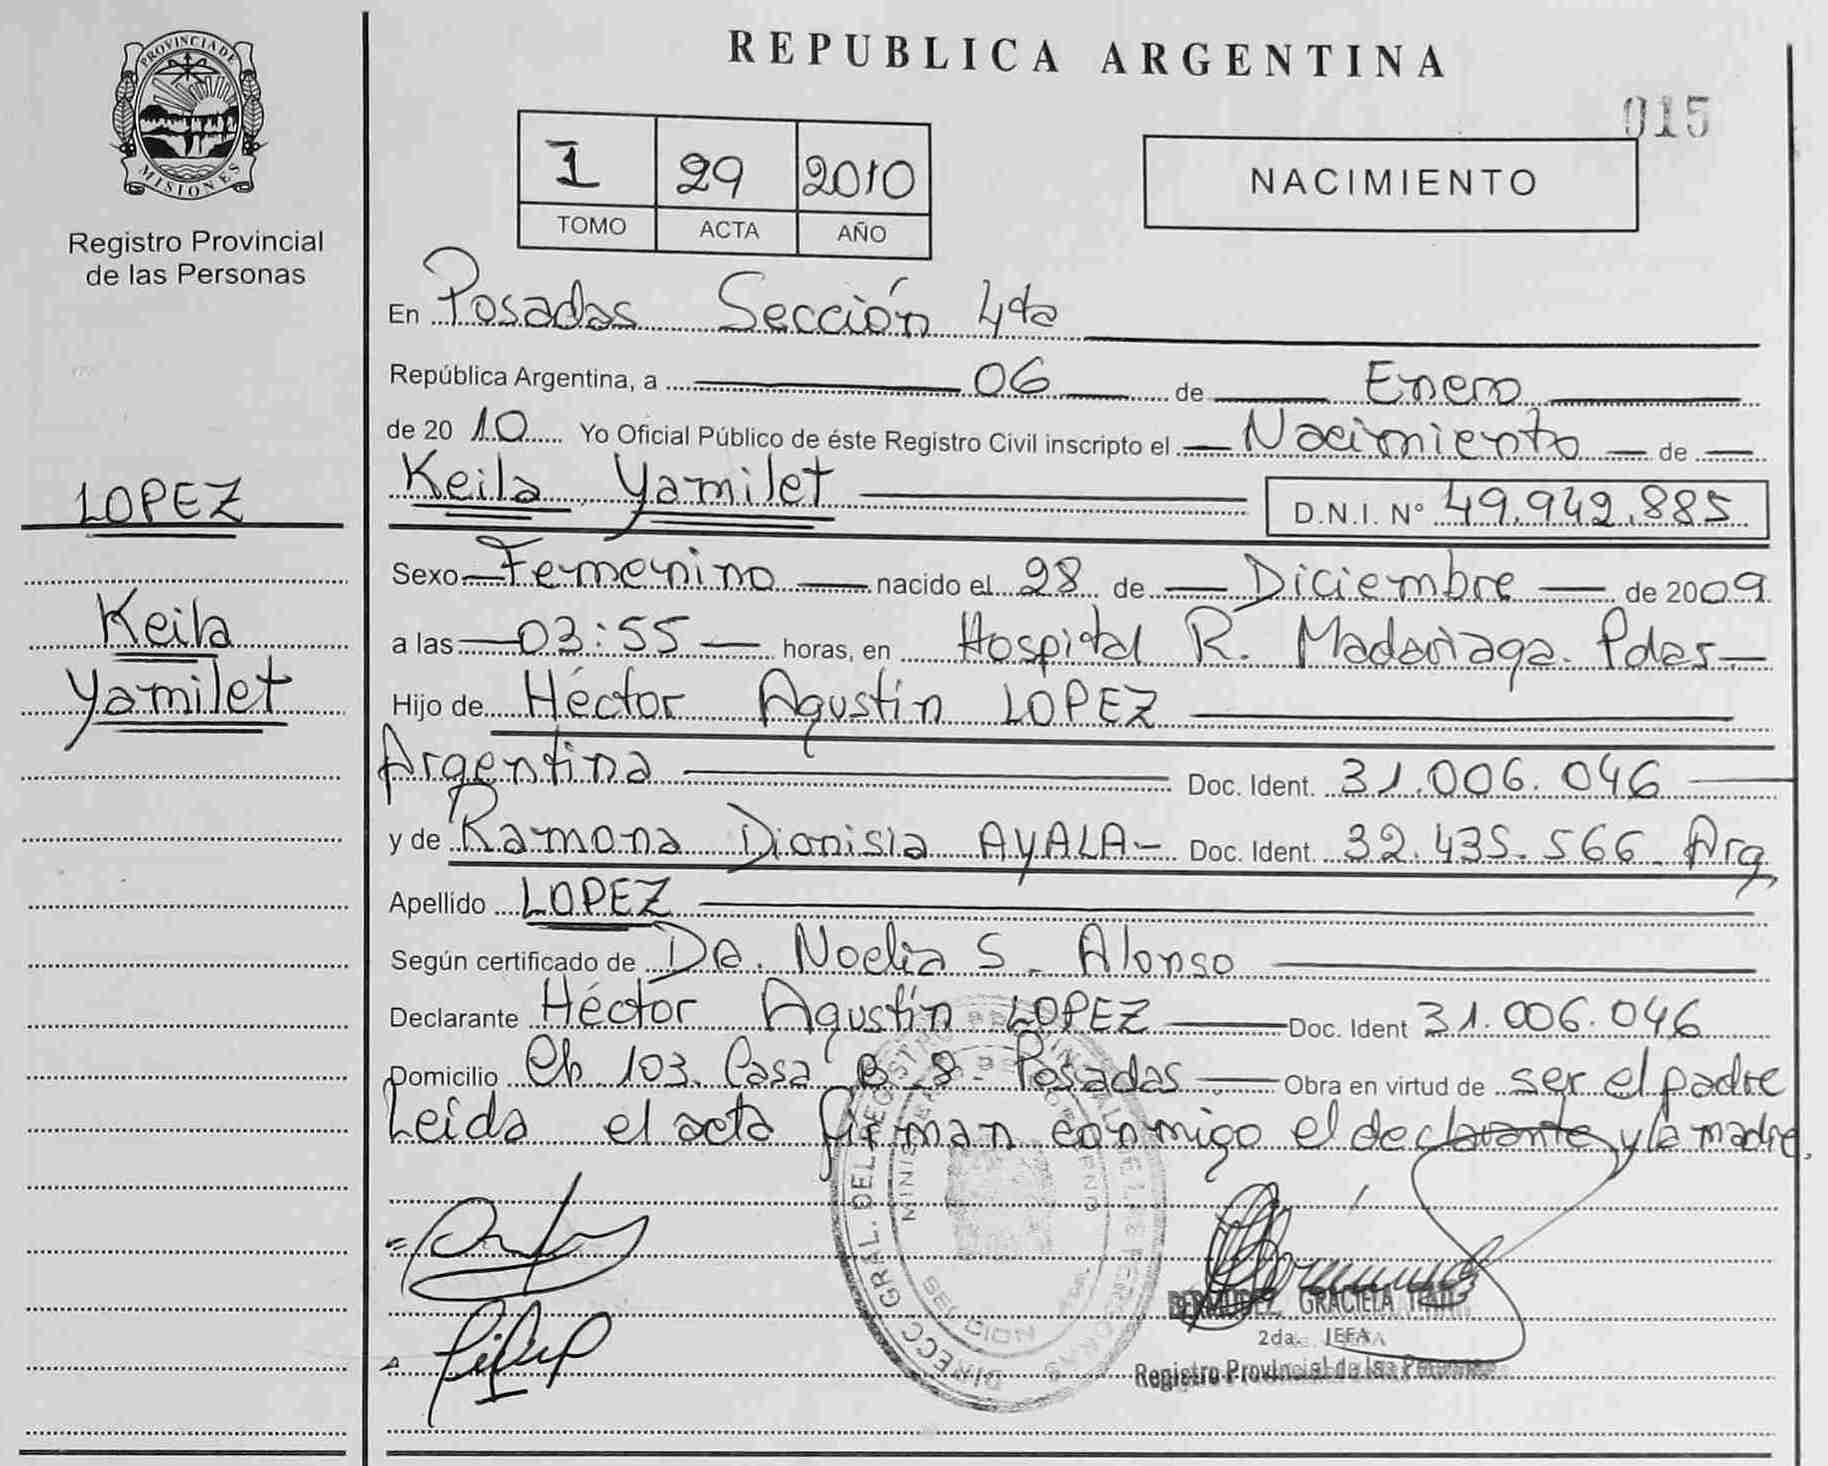 PROVINCIA DE
MISIONES
Registro Provincial
de las Personas
LOPEZ
Keila
Yamilet
REPUBLICA ARGENTINA
015
I 29 2010
TOMO ACTA AÑO
NACIMIENTO
En Posadas Sección 4ta
República Argentina, a 06 de Enero
de 2010 Yo Oficial Público de éste Registro Civil inscripto el Nacimiento de
Keila Yamilet D.N.I. N° 49.942.885
Sexo Femenino nacido el 28 de Diciembre de 2009
a las 03:55 horas, en Hospital R. Madariaga. Pdas
Hijo de Héctor Agustín LOPEZ
Argentina Doc. Ident. 31.006.046
y de Ramona Dionisia AYALA Doc. Ident. 32.435.566 Arg,
Apellido LOPEZ
Según certificado de Da. Noelia S. Alonso
Declarante Héctor Agustín LOPEZ Doc. Ident 31.006.046
Domicilio Ch 103. Casa 8. Posadas Obra en virtud de ser el padre
Leída el acta firman conmigo el declarante y la madre,
DIRECC GRAL. DEL REGISTRO PROVINCIAL DE LAS PERSONAS
BERMUDEZ, GRACIELA ITATI
2da. JEFA
Registro Provincial de las Personas